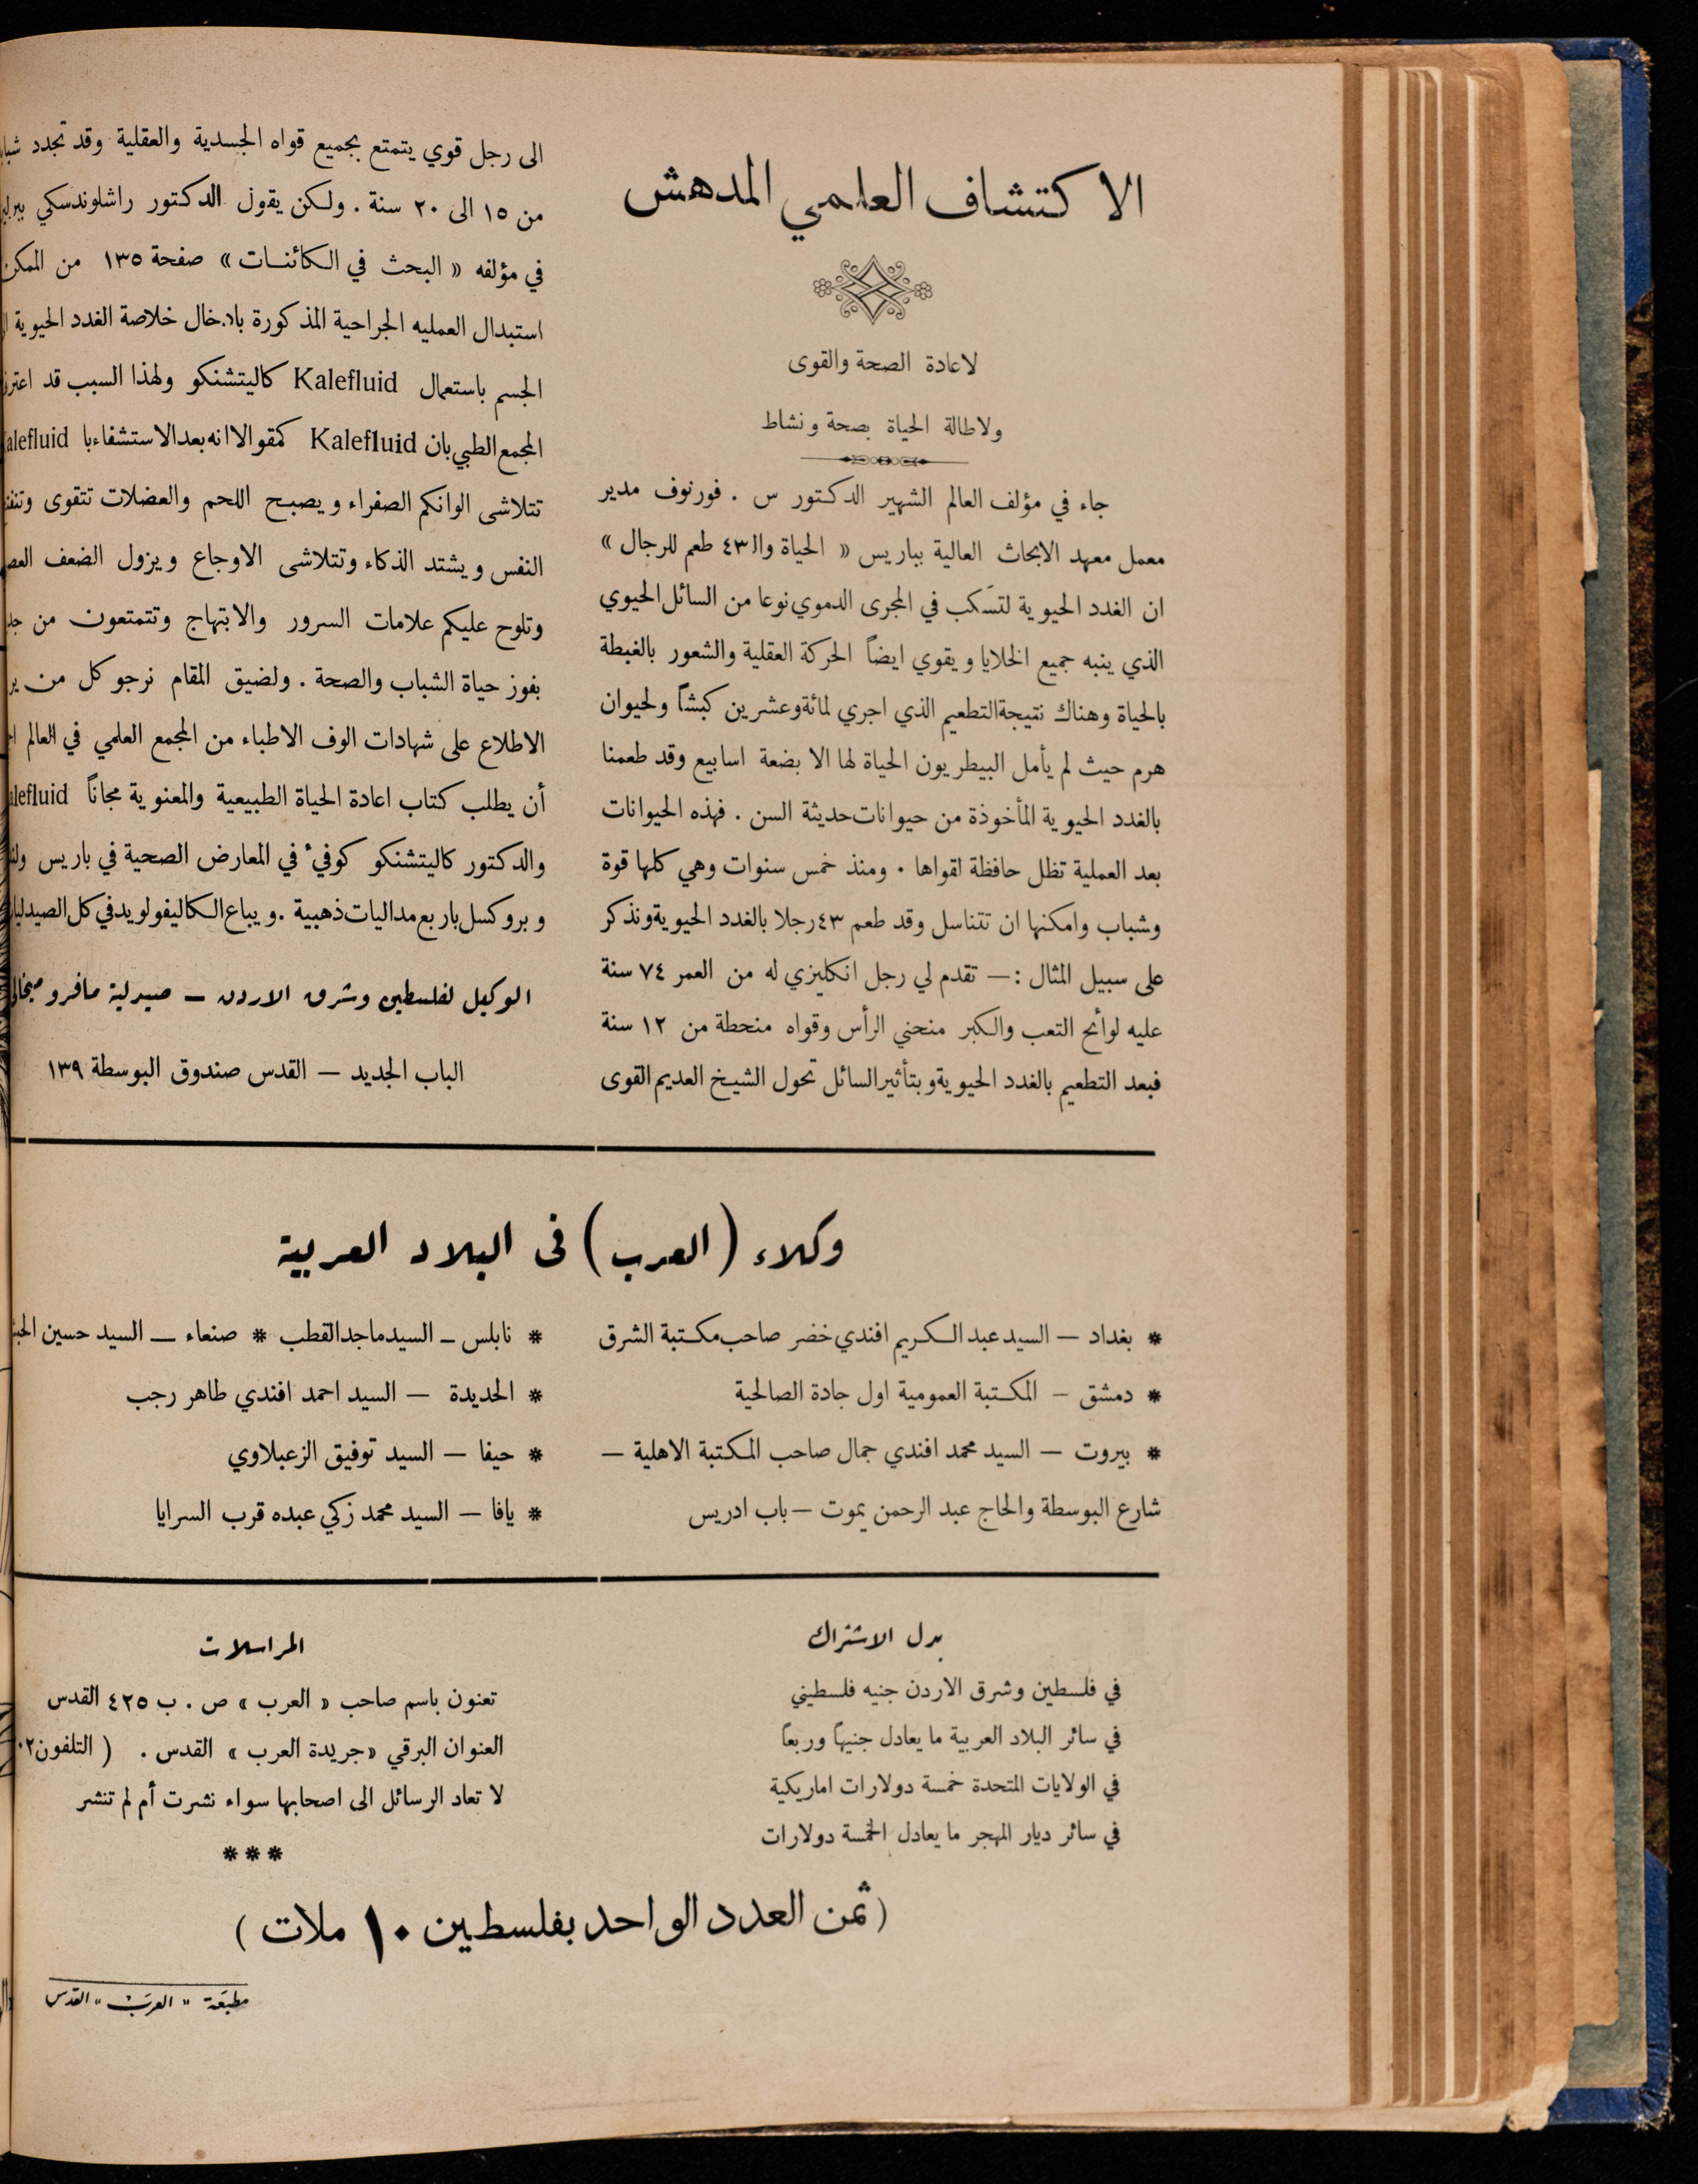 الاكتشاف العلمي المدهش
لاعادة الصحة والقوى
ولاطالة الحياة بصحة ونشاط
جاء في مؤلف العالم الشهير الدكتور س . فورنوف مدير
معمل معهد الابحاث العالية بباريس « الحياة والـ٤٣ طعم للرجال »
ان الغدد الحيوية لتسكب في المجرى الدموي نوعا من السائل الحيوي
الذي ينبه جميع الخلايا ويقوي ايضاً الحركة العقلية والشعور بالغبطة
بالحياة وهناك نتيجة التطعيم الذي اجري لمائة وعشرين كبشاً ولحيوان
هرم حيث لم يأمل البيطريون الحياة لها الا بضعة اسابيع وقد طعمنا
بالغدد الحيوية المأخوذة من حيوانات حديثة السن . فهذه الحيوانات
بعد العملية تظل حافظة لقواها . ومنذ خمس سنوات وهي كلها قوة
وشباب وامكنها ان تتناسل وقد طعم ٤٣ رجلا بالغدد الحيوية ونذكر
على سبيل المثال : — تقدم لي رجل انكليزي له من العمر ٧٤ سنة
عليه لوائح التعب والكبر منحني الرأس وقواه منحطة من ١٢ سنة
فبعد التطعيم بالغدد الحيوية وبتأثير السائل تحول الشيخ العديم القوى
الى رجل قوي يتمتع بجميع قواه الجسدية والعقلية وقد تجدد
من ١٥ الى ٢٠ سنة . ولكن يقول الدكتور راشلوندسكي
في مؤلفه « البحث في الكائنات » صفحة ١٣٥ من الممكن
استبدال العمليه الجراحية المذكورة بادخال خلاصة الغدد الحيوية
الجسم باستعمال Kalefluid كاليتشنكو ولهذا السبب قد
المجمع الطبي بان Kalefluid كمقو الا انه بعد الاستشفاء با
تتلاشى الوانكم الصفراء ويصبح اللحم والعضلات تتقوى
النفس ويشتد الذكاء وتتلاشى الاوجاع ويزول الضعف
وتلوح عليكم علامات السرور والابتهاج وتتمتعون من
بفوز حياة الشباب والصحة . ولضيق المقام نرجو كل من
الاطلاع على شهادات الوف الاطباء من المجمع العلمي في العالم
أن يطلب كتاب اعادة الحياة الطبيعية والمعنوية مجاناً
والدكتور كاليتشنكو كوفيء في المعارض الصحية في باريس
وبروكسل باربع مداليات ذهبية . ويباع الكاليفولويد في كل
الوكيل لفلسطين وشرق الاردن — صيدلية مافرو
الباب الجديد — القدس صندوق البوسطة ١٣٩
وكلاء ( العرب ) في البلاد العربية
* بغداد — السيد عبد الكريم افندي خضر صاحب مكتبة الشرق
* دمشق — المكتبة العمومية اول جادة الصالحية
* بيروت — السيد محمد افندي جمال صاحب المكتبة الاهلية —
شارع البوسطة والحاج عبد الرحمن يموت — باب ادريس
* نابلس — السيد ماجد القطب * صنعاء — السيد حسين
* الحديدة — السيد احمد افندي طاهر رجب
* حيفا — السيد توفيق الزعبلاوي
* يافا — السيد محمد زكي عبده قرب السرايا
بدل الاشتراك
في فلسطين وشرق الاردن جنيه فلسطيني
في سائر البلاد العربية ما يعادل جنيهاً وربعاً
في الولايات المتحدة خمسة دولارات اماريكية
في سائر ديار المهجر ما يعادل الخمسة دولارات
المراسلات
تعنون باسم صاحب « العرب » ص . ب ٤٢٥ القدس
العنوان البرقي « جريدة العرب » القدس . ( التلفون
لا تعاد الرسائل الى اصحابها سواء نشرت أم لم تنشر
***
( ثمن العدد الواحد بفلسطين ١٠ ملات )
مطبعة « العرب » القدس